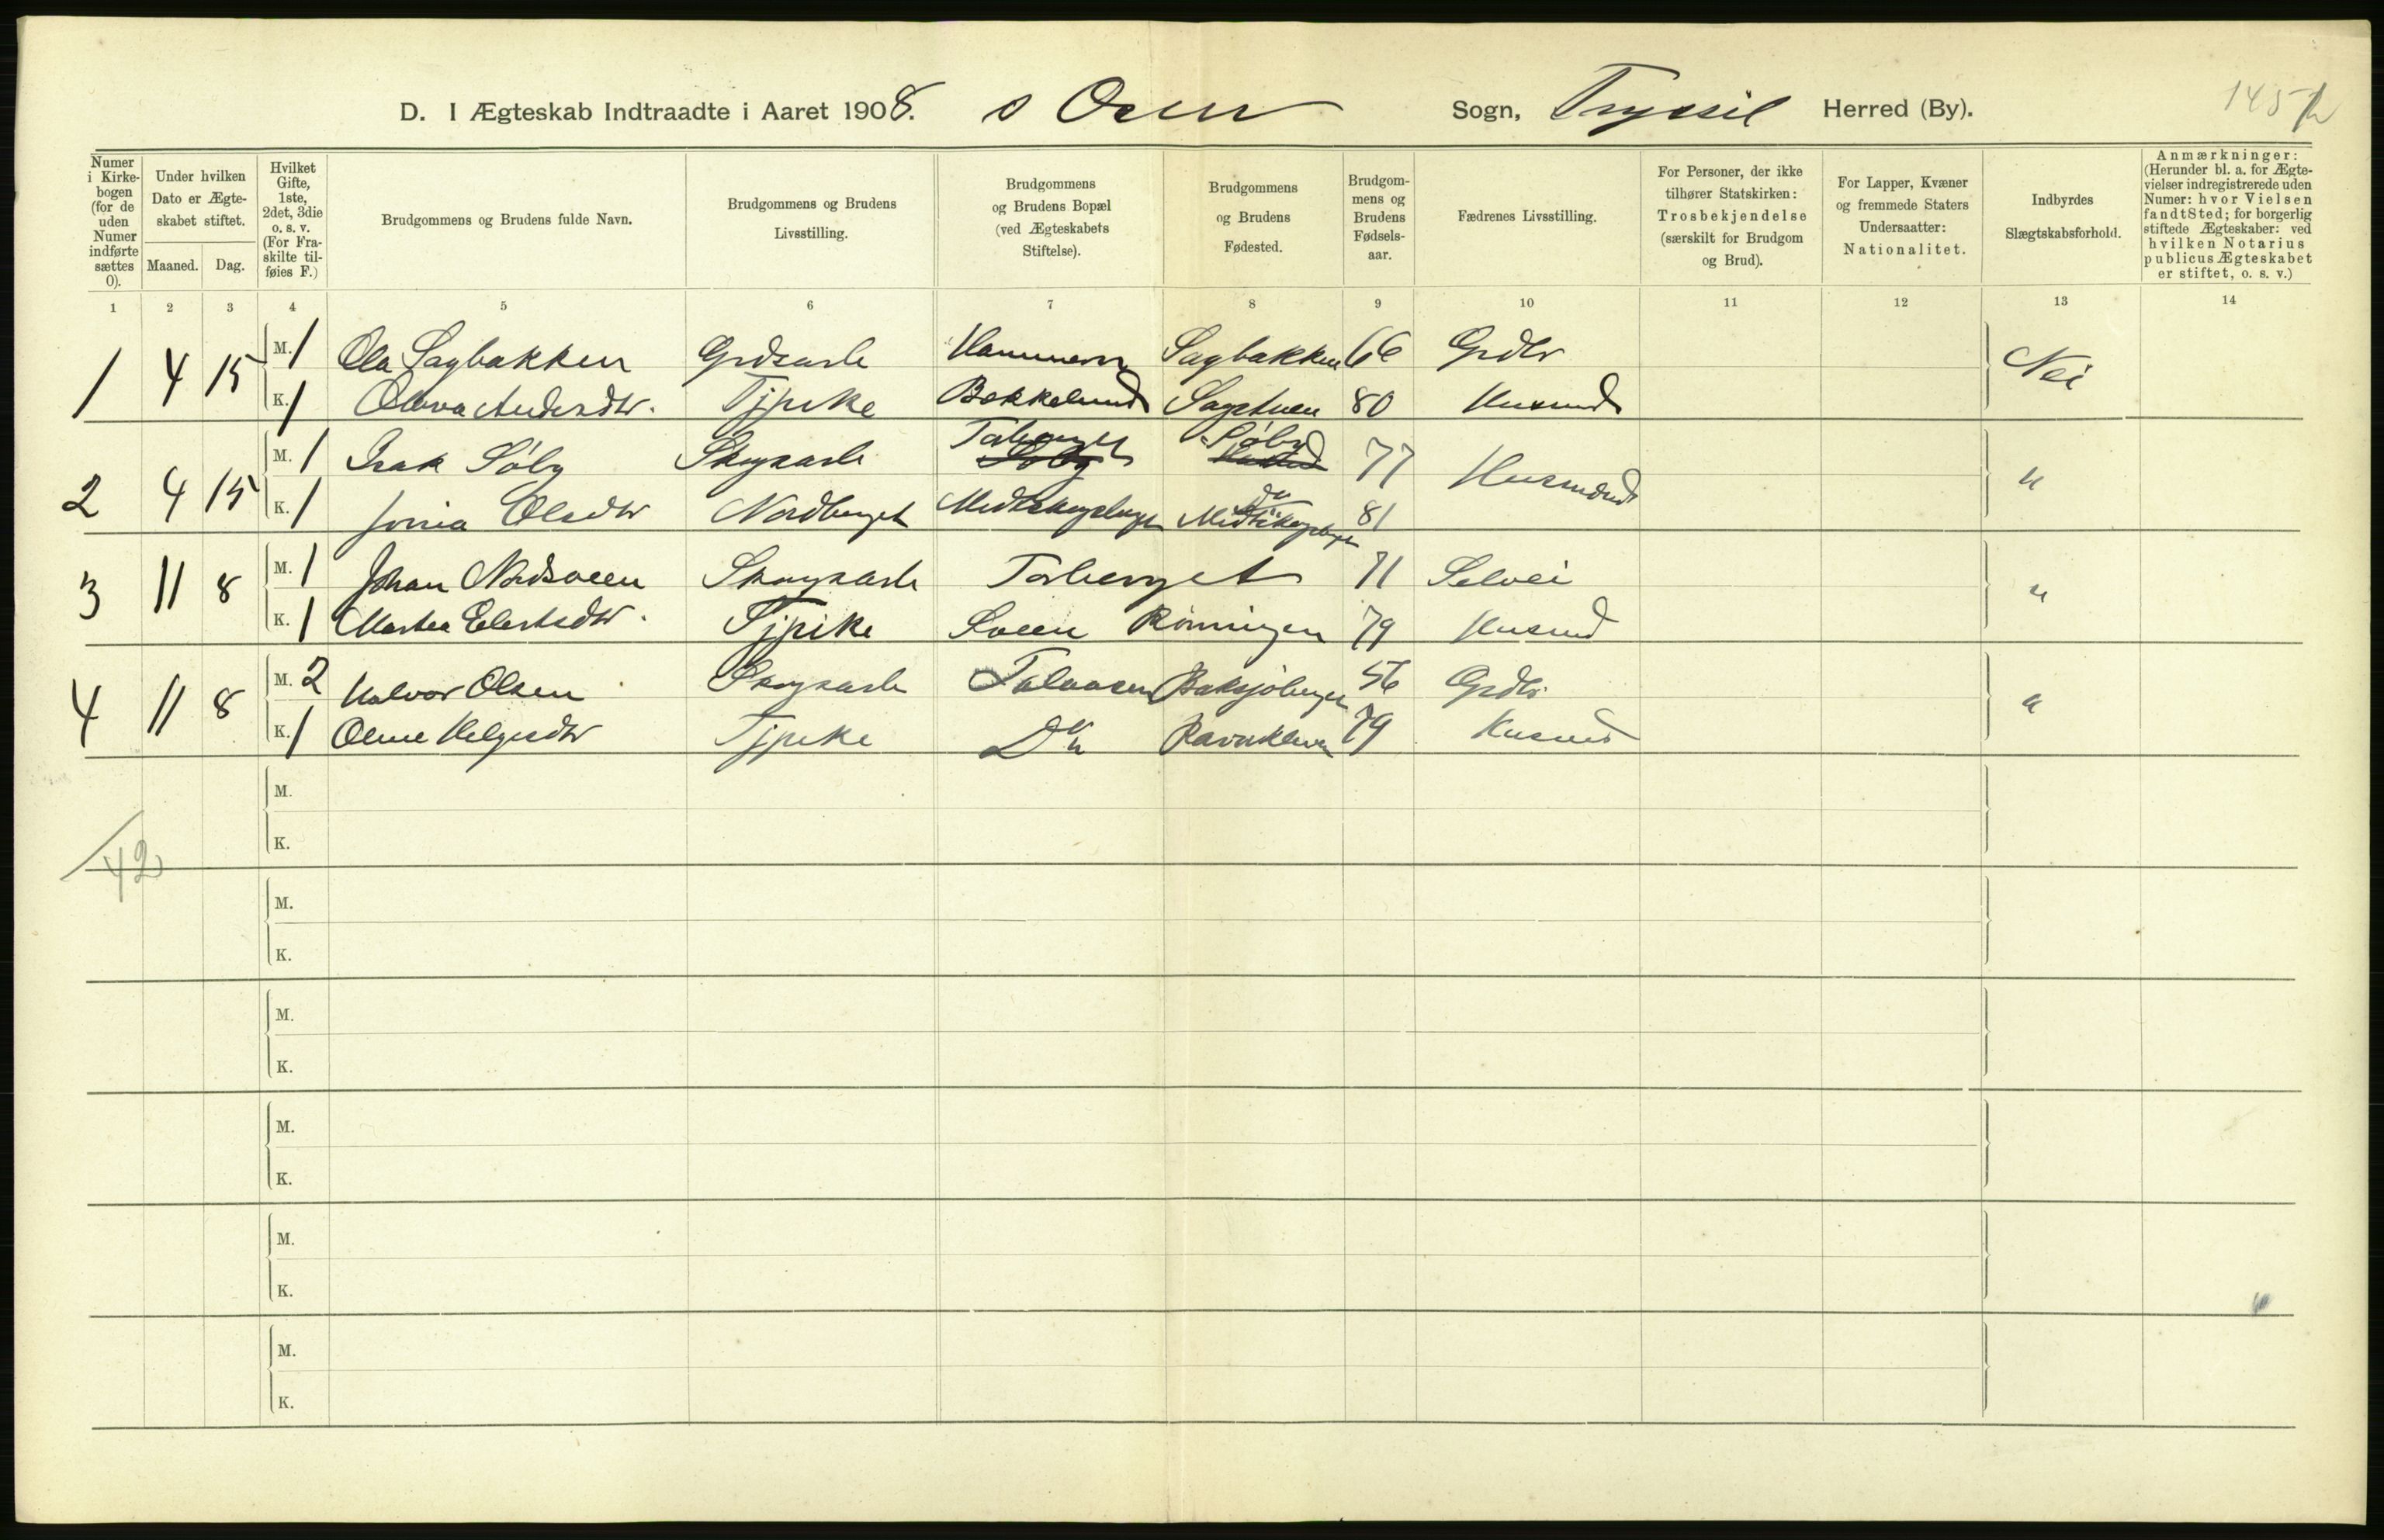 D. I Ægteskab Indtraadte i Aaret 1908. s Osen Sogn, Trysil Herred (By). 145
Numer i Kirkebogen (for de uden Numer indførte sættes 0).
Under hvilken Dato er Ægteskabet stiftet.
Maaned. Dag.
Hvilket Gifte, 1ste, 2det, 3die o. s. v. (For Fraskilte tilføies F.)
Brudgommens og Brudens fulde Navn.
Brudgommens og Brudens Livsstilling.
Brudgommens og Brudens Bopæl (ved Ægteskabets Stiftelse).
Brudgommens og Brudens Fødested.
Brudgommens og Brudens Fødselsaar.
Fædrenes Livsstilling.
For Personer, der ikke tilhører Statskirken: Trosbekjendelse (særskilt for Brudgom og Brud).
For Lapper, Kvæner og fremmede Staters Undersaatter: Nationalitet.
Indbyrdes Slægtskabsforhold.
Anmærkninger: (Herunder bl. a. for Ægtevielser indregistrerede uden Numer: hvor Vielsen fandt Sted; for borgerlig stiftede Ægteskaber: ved hvilken Notarius publicus Ægteskabet er stiftet, o. s. v.)
1 2 3 4 5 6 7 8 9 10 11 12 13 14
1 4 15 M. 1 Ola Sagbakken Grdsarb Hammeren Sagbakken 66 Grdbr Nei
K. 1 Olava Andersdtr. Tjpike Bekkelund Sagstuen 80 Husmd
2 4 15 M. 1 Isak Søby Skogsarb Torberget Søby 77 Husmænd "
K. 1 Jonia Olsdtr Nordberget Midtskogsberget Midtskogsberget 81
3 11 8 M. 1 Johan Nordsveen Skogsarb Torberget 71 Selvei "
K. 1 Martea Eilertsdtr. Tjpike Sveen Rønningen 79 Husmd
4 11 8 M. 2 Halvor Olsen Skogsarb Talaasen Baksjøberget 56 Grdbr "
K. 1 Oline Helgesdtr Tjpike Do Ravnkleven 79 Husmd
M.
K.
42
M.
K.
M.
K.
M.
K.
M.
K.
M.
K.